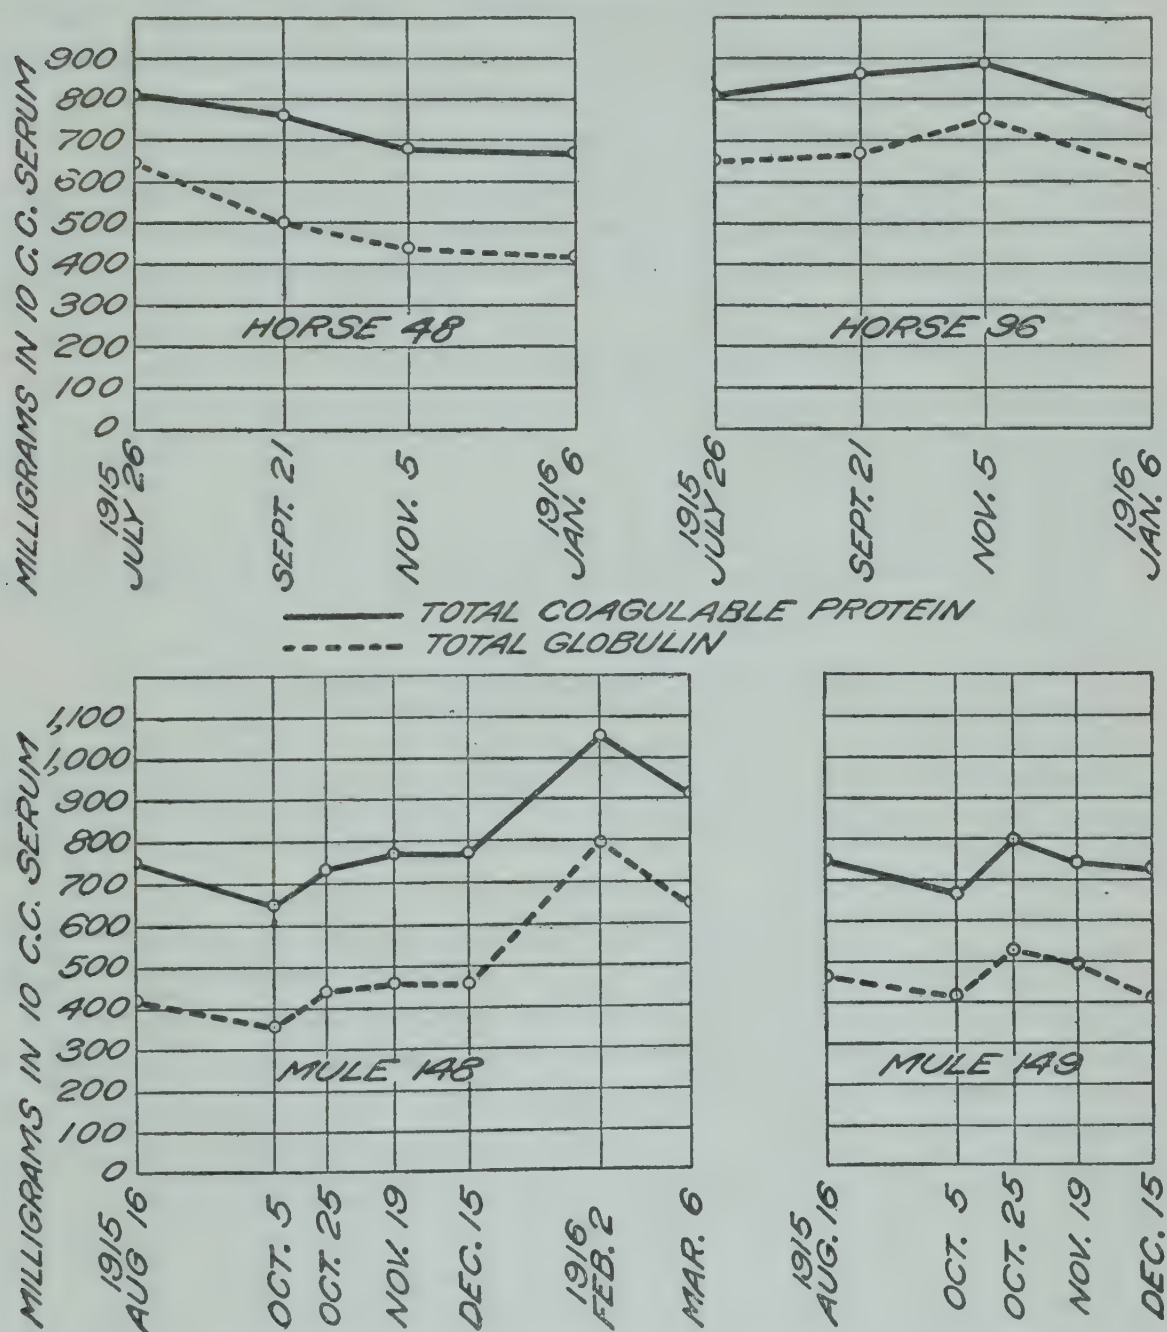 MILLIGRAMS IN 10 C.C. SERUM
900
800
700
600
500
400
300
200
100
0
HORSE 48
1915
JULY 26
SEPT. 21
NOV. 5
1916
JAN. 6
HORSE 96
1915
JULY 26
SEPT. 21
NOV. 5
1916
JAN. 6
TOTAL COAGULABLE PROTEIN
TOTAL GLOBULIN
MILLIGRAMS IN 10 C.C. SERUM
1,100
1,000
900
800
700
600
500
400
300
200
100
0
MULE 148
1915
AUG 16
OCT. 5
OCT. 25
NOV. 19
DEC. 15
1916
FEB. 2
MAR. 6
MULE 149
1915
AUG. 16
OCT. 5
OCT. 25
NOV. 19
DEC. 15